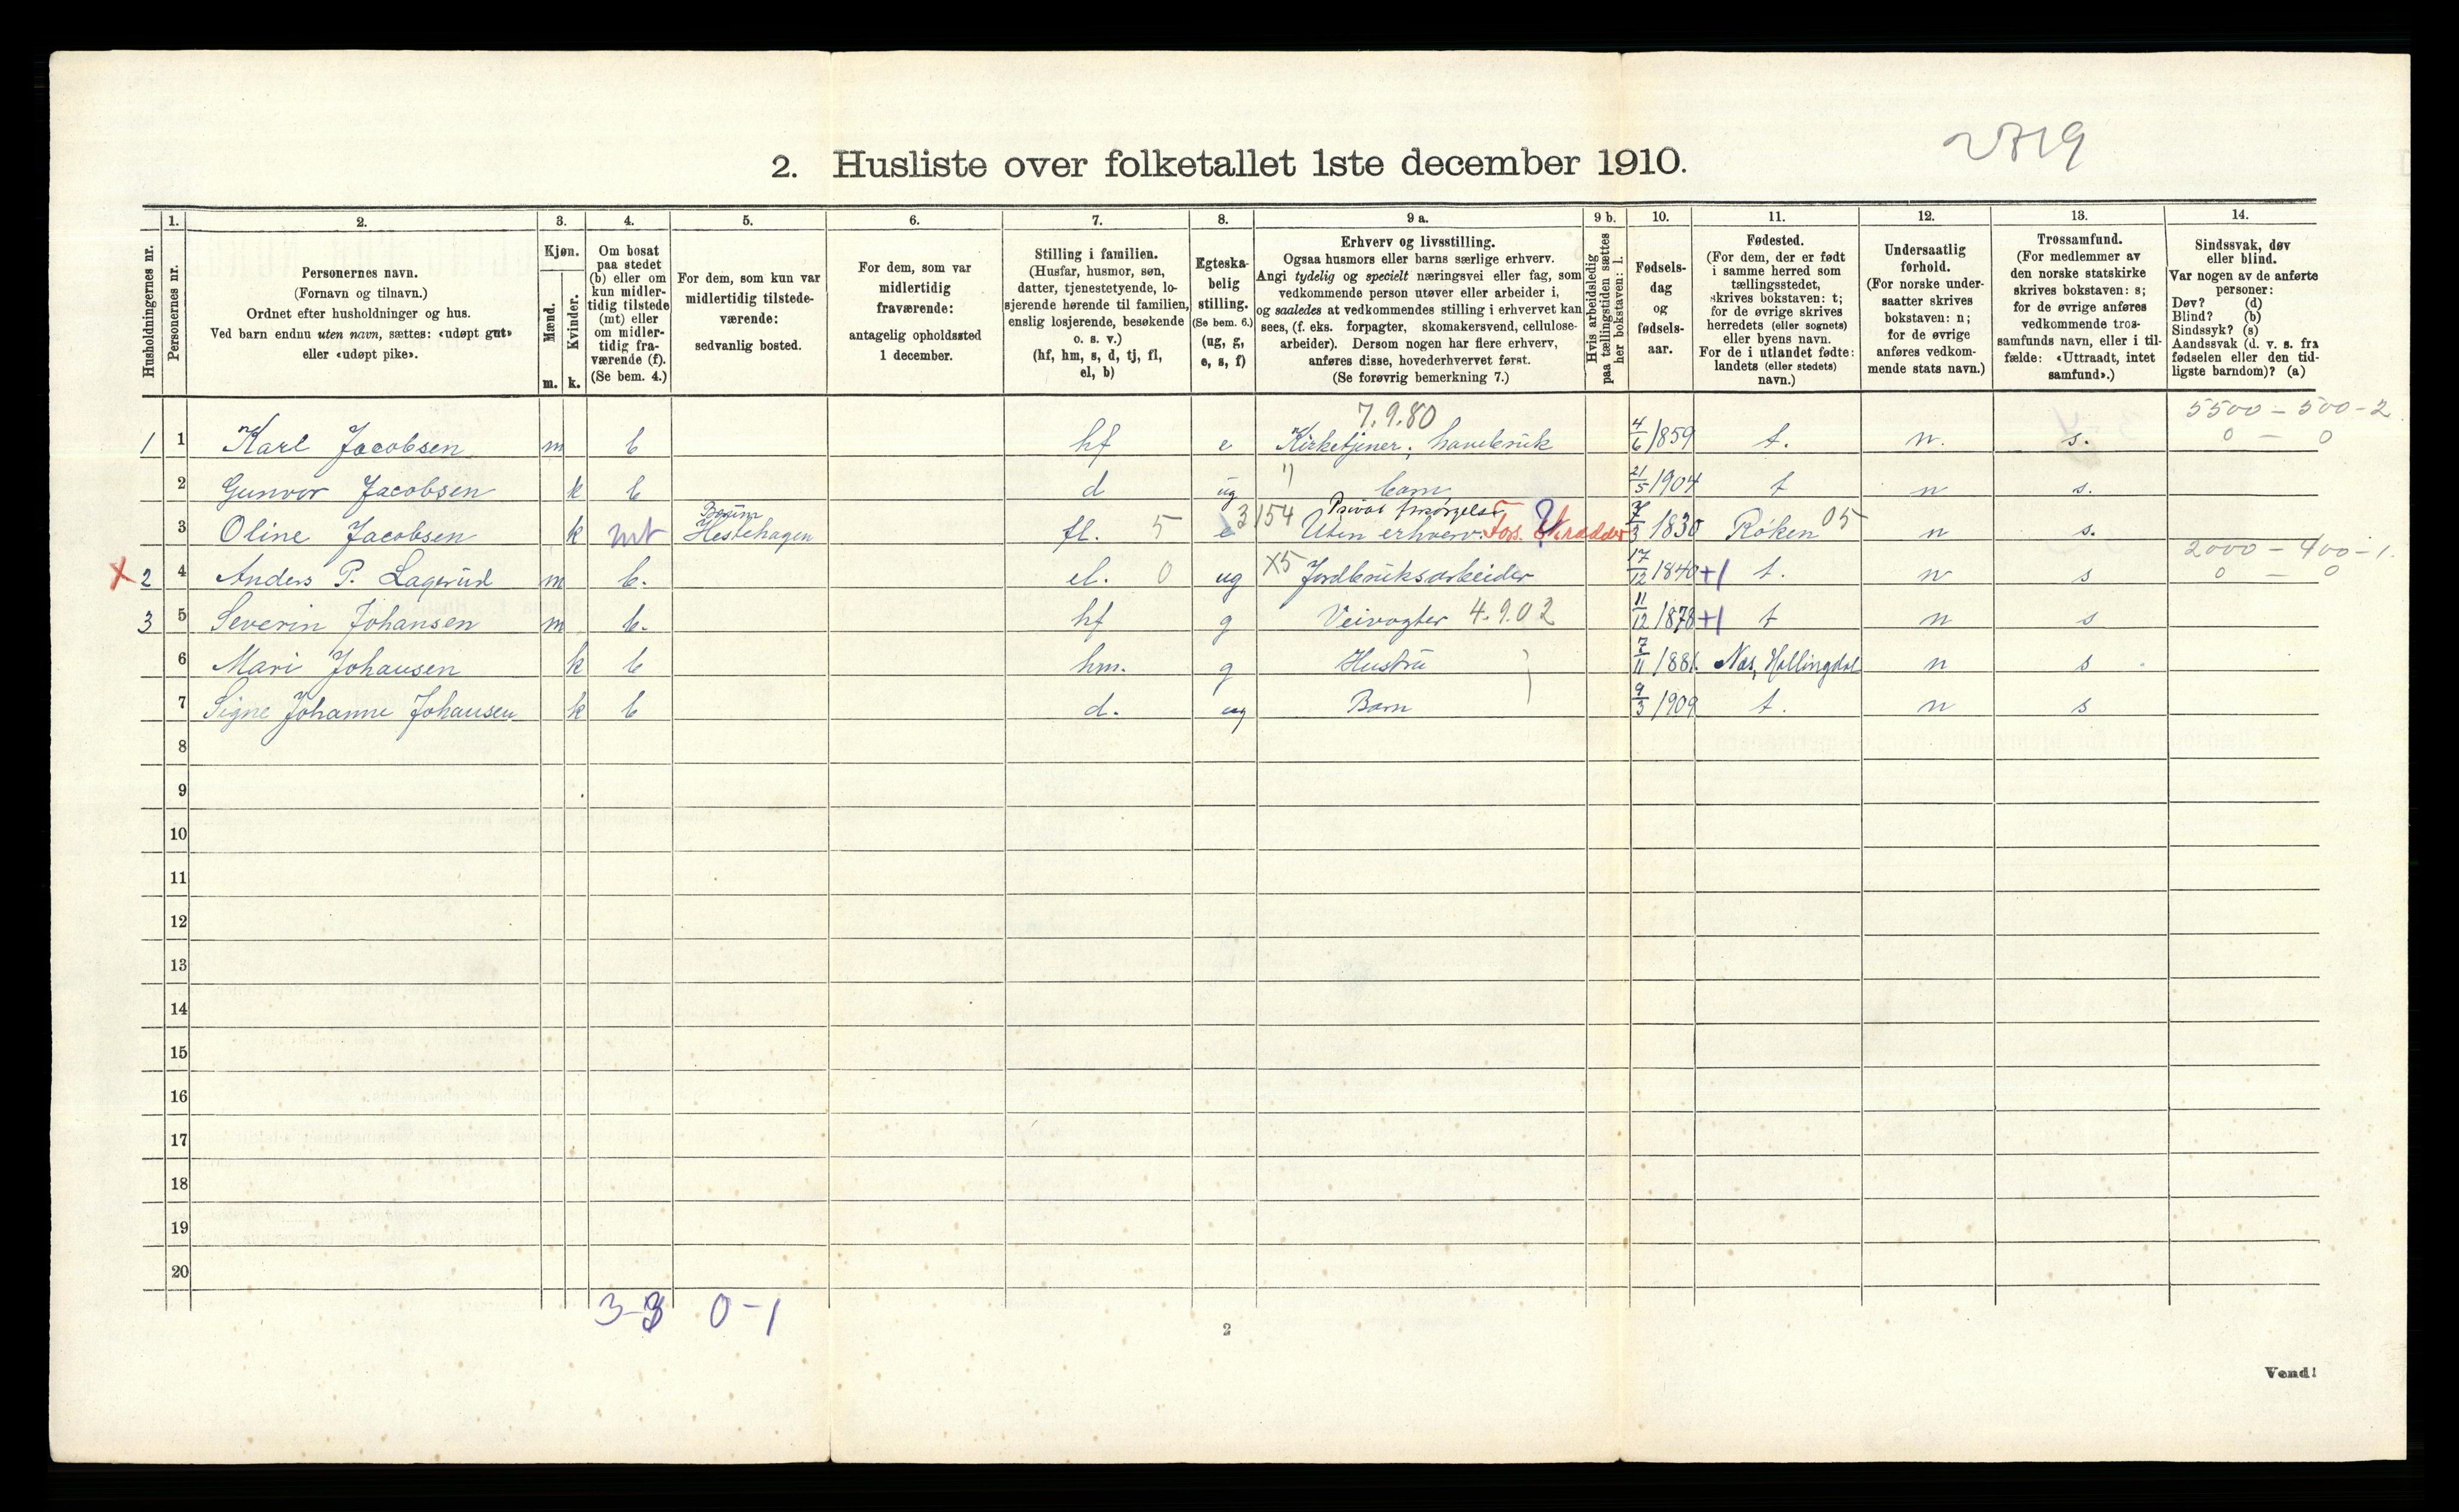 2719
2. Husliste over folketallet 1ste december 1910.
Husholdningernes nr.
1. Personernes nr.
2. Personernes navn.
(Fornavn og tilnavn.)
Ordnet efter husholdninger og hus.
Ved barn endnu uten navn, sættes: «udøpt gut»
eller «udøpt pike».
3. Kjøn.
Mænd. Kvinder.
m. k.
4. Om bosat
paa stedet
(b) eller om
kun midler-
tidig tilstede
(mt) eller
om midler-
tidig fra-
værende (f).
(Se bem. 4.)
5. For dem, som kun var
midlertidig tilstede-
værende:
sedvanlig bosted.
6. For dem, som var
midlertidig
fraværende:
antagelig opholdssted
1 december.
7. Stilling i familien.
(Husfar, husmor, søn,
datter, tjenestetyende, lo-
sjerende hørende til familien,
enslig losjerende, besøkende
o. s. v.)
(hf, hm, s, d, tj, fl,
el, b)
8. Egteska-
belig
stilling.
(Se bem. 6.)
(ug, g,
e, s, f)
9 a. Erhverv og livsstilling.
Ogsaa husmors eller barns særlige erhverv.
Angi tydelig og specielt næringsvei eller fag, som
vedkommende person utøver eller arbeider i,
og saaledes at vedkommendes stilling i erhvervet kan
sees, (f. eks. forpagter, skomakersvend, cellulose-
arbeider). Dersom nogen har flere erhverv,
anføres disse, hovederhvervet først.
(Se forøvrig bemerkning 7.)
9 b. Hvis arbeidsledig
paa tællingstiden sættes
her bokstaven: l.
10. Fødsels-
dag
og
fødsels-
aar.
11. Fødested.
(For dem, der er født
i samme herred som
tællingsstedet,
skrives bokstaven: t;
for de øvrige skrives
herredets (eller sognets)
eller byens navn.
For de i utlandet fødte:
landets (eller stedets)
navn.)
12. Undersaatlig
forhold.
(For norske under-
saatter skrives
bokstaven: n;
for de øvrige
anføres vedkom-
mende stats navn.)
13. Trossamfund.
(For medlemmer av
den norske statskirke
skrives bokstaven: s;
for de øvrige anføres
vedkommende tros-
samfunds navn, eller i til-
fælde: «Uttraadt, intet
samfund».)
14. Sindssvak, døv
eller blind.
Var nogen av de anførte
personer:
Døv? (d)
Blind? (b)
Sindssyk? (s)
Aandssvak (d. v. s. fra
fødselen eller den tid-
ligste barndom)? (a)
7.9.80 5500 - 500 - 2
1 1 Karl Jacobsen m b hf e Kirketjener, havebruk 4/6 1859 t. n. s. 0 - 0
2 Gunvor Jacobsen k b d ug barn 21/5 1904 t n s.
Bærum 3154 Privat forsørgelse
3 Oline Jacobsen k mt Hestehagen fl. 5 e Uten erhverv. 7/3 1830 Røken 05 n s.
2000 - 400 - 1
X 2 4 Anders P. Lagerud m b. el. 0 ug X5 Jordbruksarbeider 17/12 1840 +1 t. n s 0 - 0
3 5 Severin Johansen m b. hf g Veivogter 4.9.02 11/12 1878 +1 t n s
6 Mari Johansen k b hm. g Hustru 7/11 1881. Nes, Hallingdal n s
7 Signe Johanne Johansen k b d. ug Barn 9/3 1909 t. n s
8
9
10
11
12
13
14
15
16
17
18
19
20
3-3 0-1
2
Vend!